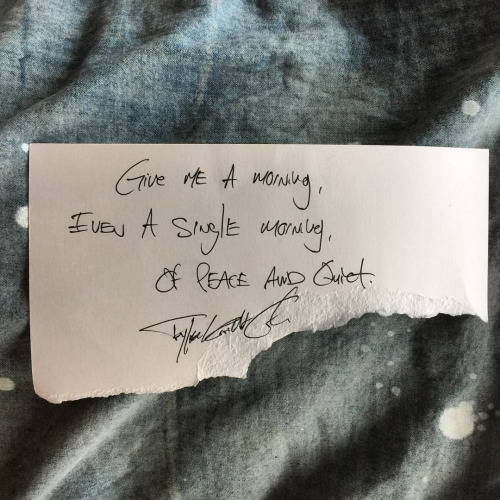 Give ME A morning,
EVEN A SinglE morning,
Of PEACE AND Quiet.